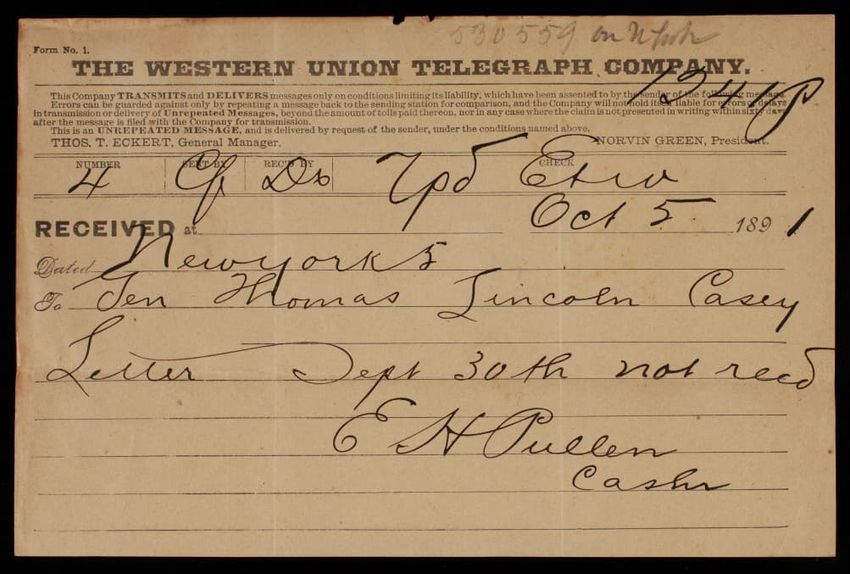 530559 on N York
Form No. 1.
THE WESTERN UNION TELEGRAPH COMPANY.
1241P
This Company TRANSMITS and DELIVERS messages only on conditions limiting its liability, which have been assented to by the sender of the following message.
Errors can be guarded against only by repeating a message back to the sending station for comparison, and the Company will not hold itself liable for errors or delays
in transmission or delivery of Unrepeated Messages, beyond the amount of tolls paid thereon, nor in any case where the claim is not presented in writing within sixty days
after the message is filed with the Company for transmission.
This is an UNREPEATED MESSAGE, and is delivered by request of the sender, under the conditions named above.
THOS. T. ECKERT, General Manager. NORVIN GREEN, President.
NUMBER SENT BY REC'D BY CHECK
4 7pd
RECEIVED at Oct 5 1891
Dated New York 5
To Gen Thomas Lincoln Casey
Letter Sept 30th not recd
E H Pullen
Cashr